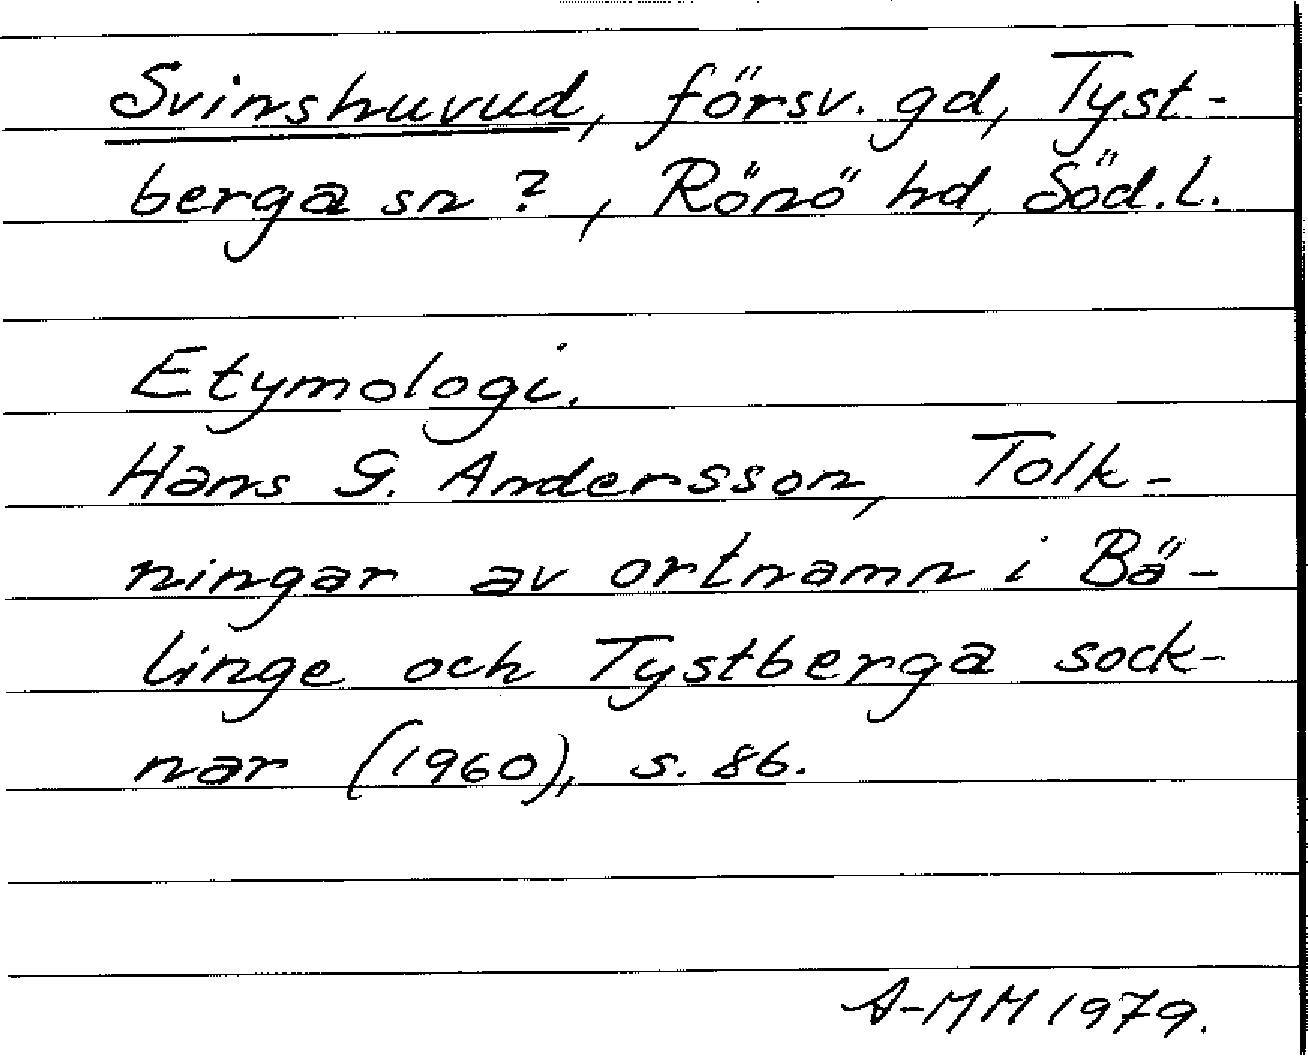 Svinshuvud, försv. gd, Tyst-
berga sn ?, Rönö hd, Söd.l.
Etymologi.
Hans G. Andersson, Tolk-
ningar av ortnamn i Bä-
linge och Tystberga sock-
nar (1960), s. 86.
A-MM 1979.